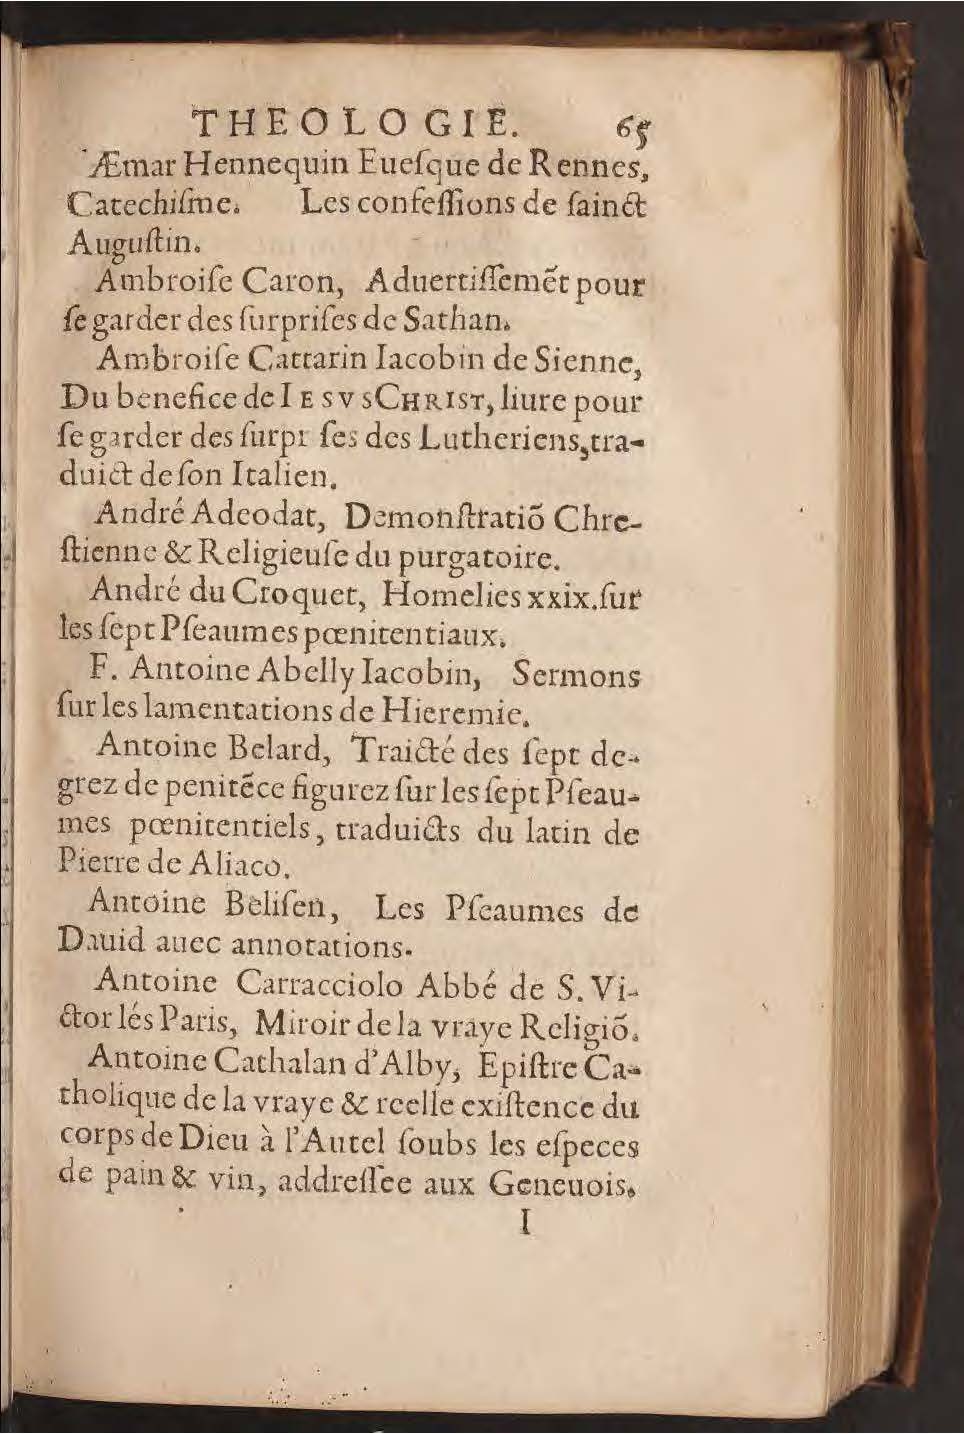 THEOLOGIE. 65
Æmar Hennequin Euesque de Rennes,
Catechiſme. Les confeſſions de ſainct
Auguſtin.
Ambroiſe Caron, Aduertiſſemẽt pour
ſe garder des ſurpriſes de Sathan.
Ambroiſe Cattarin Iacobin de Sienne,
Du benefice de IESVS CHRIST, liure pour
ſe garder des ſurpr ſes des Lutheriens, tra-
duict de ſon Italien.
André Adeodat, Demonſtratiõ Chre-
ſtienne & Religieuſe du purgatoire.
André du Croquet, Homelies xxix. ſur
les ſept Pſeaumes pœnitentiaux.
F. Antoine Abelly Iacobin, Sermons
ſur les lamentations de Hieremie.
Antoine Belard, Traicté des ſept de-
grez de penitẽce figurez ſur les ſept Pſeau-
mes pœnitentiels, traduicts du latin de
Pierre de Aliaco.
Antoine Beliſen, Les Pſeaumes de
Dauid auec annotations.
Antoine Carracciolo Abbé de S. Vi-
ctor lés Paris, Miroir de la vraye Religiõ.
Antoine Cathalan d'Alby, Epiſtre Ca-
tholique de la vraye & reelle exiſtence du
corps de Dieu à l'Autel ſoubs les eſpeces
de pain & vin, addreſſee aux Geneuois.
I